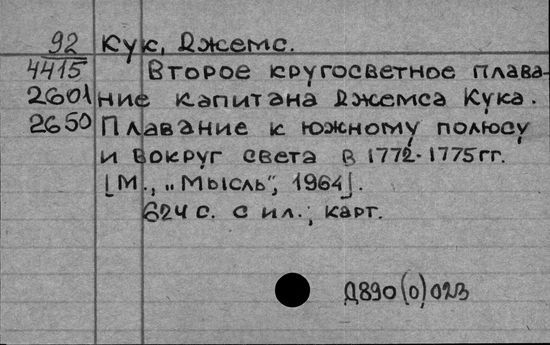 92 Кук, Джемс.
4415 Второе кругосветное плава-
2601 ние капитана Джемса Кука.
2650 Плавание к южному полюсу
и вокруг света в 1772-1775гг.
[М., „Мысль", 1964].
624 с. с ил.; карт.
Д890(0)023